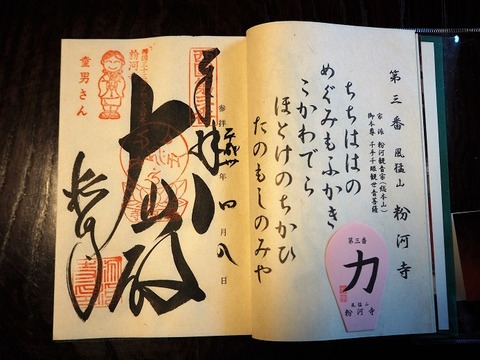 第三番 風猛山 粉河寺
宗派 粉河観音宗(総本山)
御本尊 千手千眼観世音菩薩
ちちははの
めぐみもふかき
こかわでら
ほとけのちかひ
たのもしのみや
第三番
力
風猛山
粉河寺
奉拝
参拝 平成 年 四月八日
大悲殿
粉河寺
童男さん
粉河